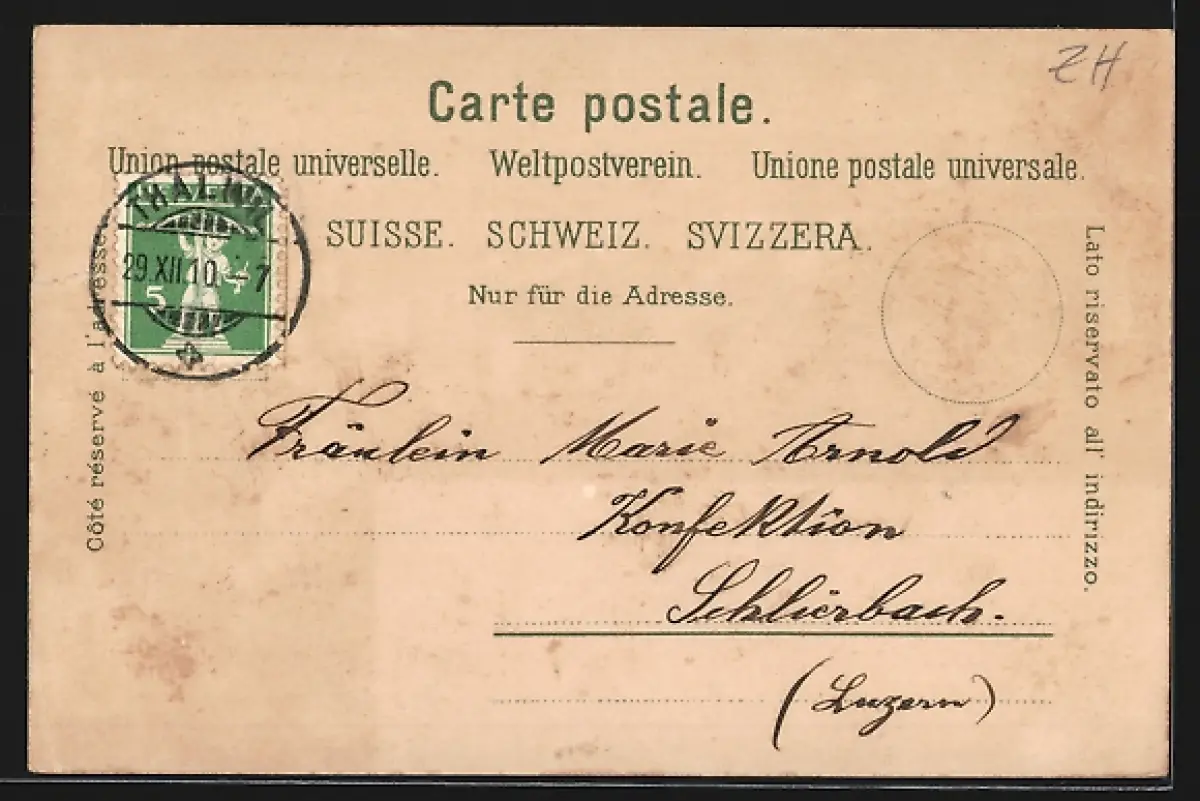 ZH
Carte postale.
Union postale universelle. Weltpostverein. Unione postale universale.
SUISSE. SCHWEIZ. SVIZZERA.
Nur für die Adresse.
Côté réservé à l'adresse.
Lato riservato all' indirizzo.
THALWIL
29.XII.10.-7
5
Fräulein Marie Arnold
Konfektion
Schlierbach.
(Luzern)